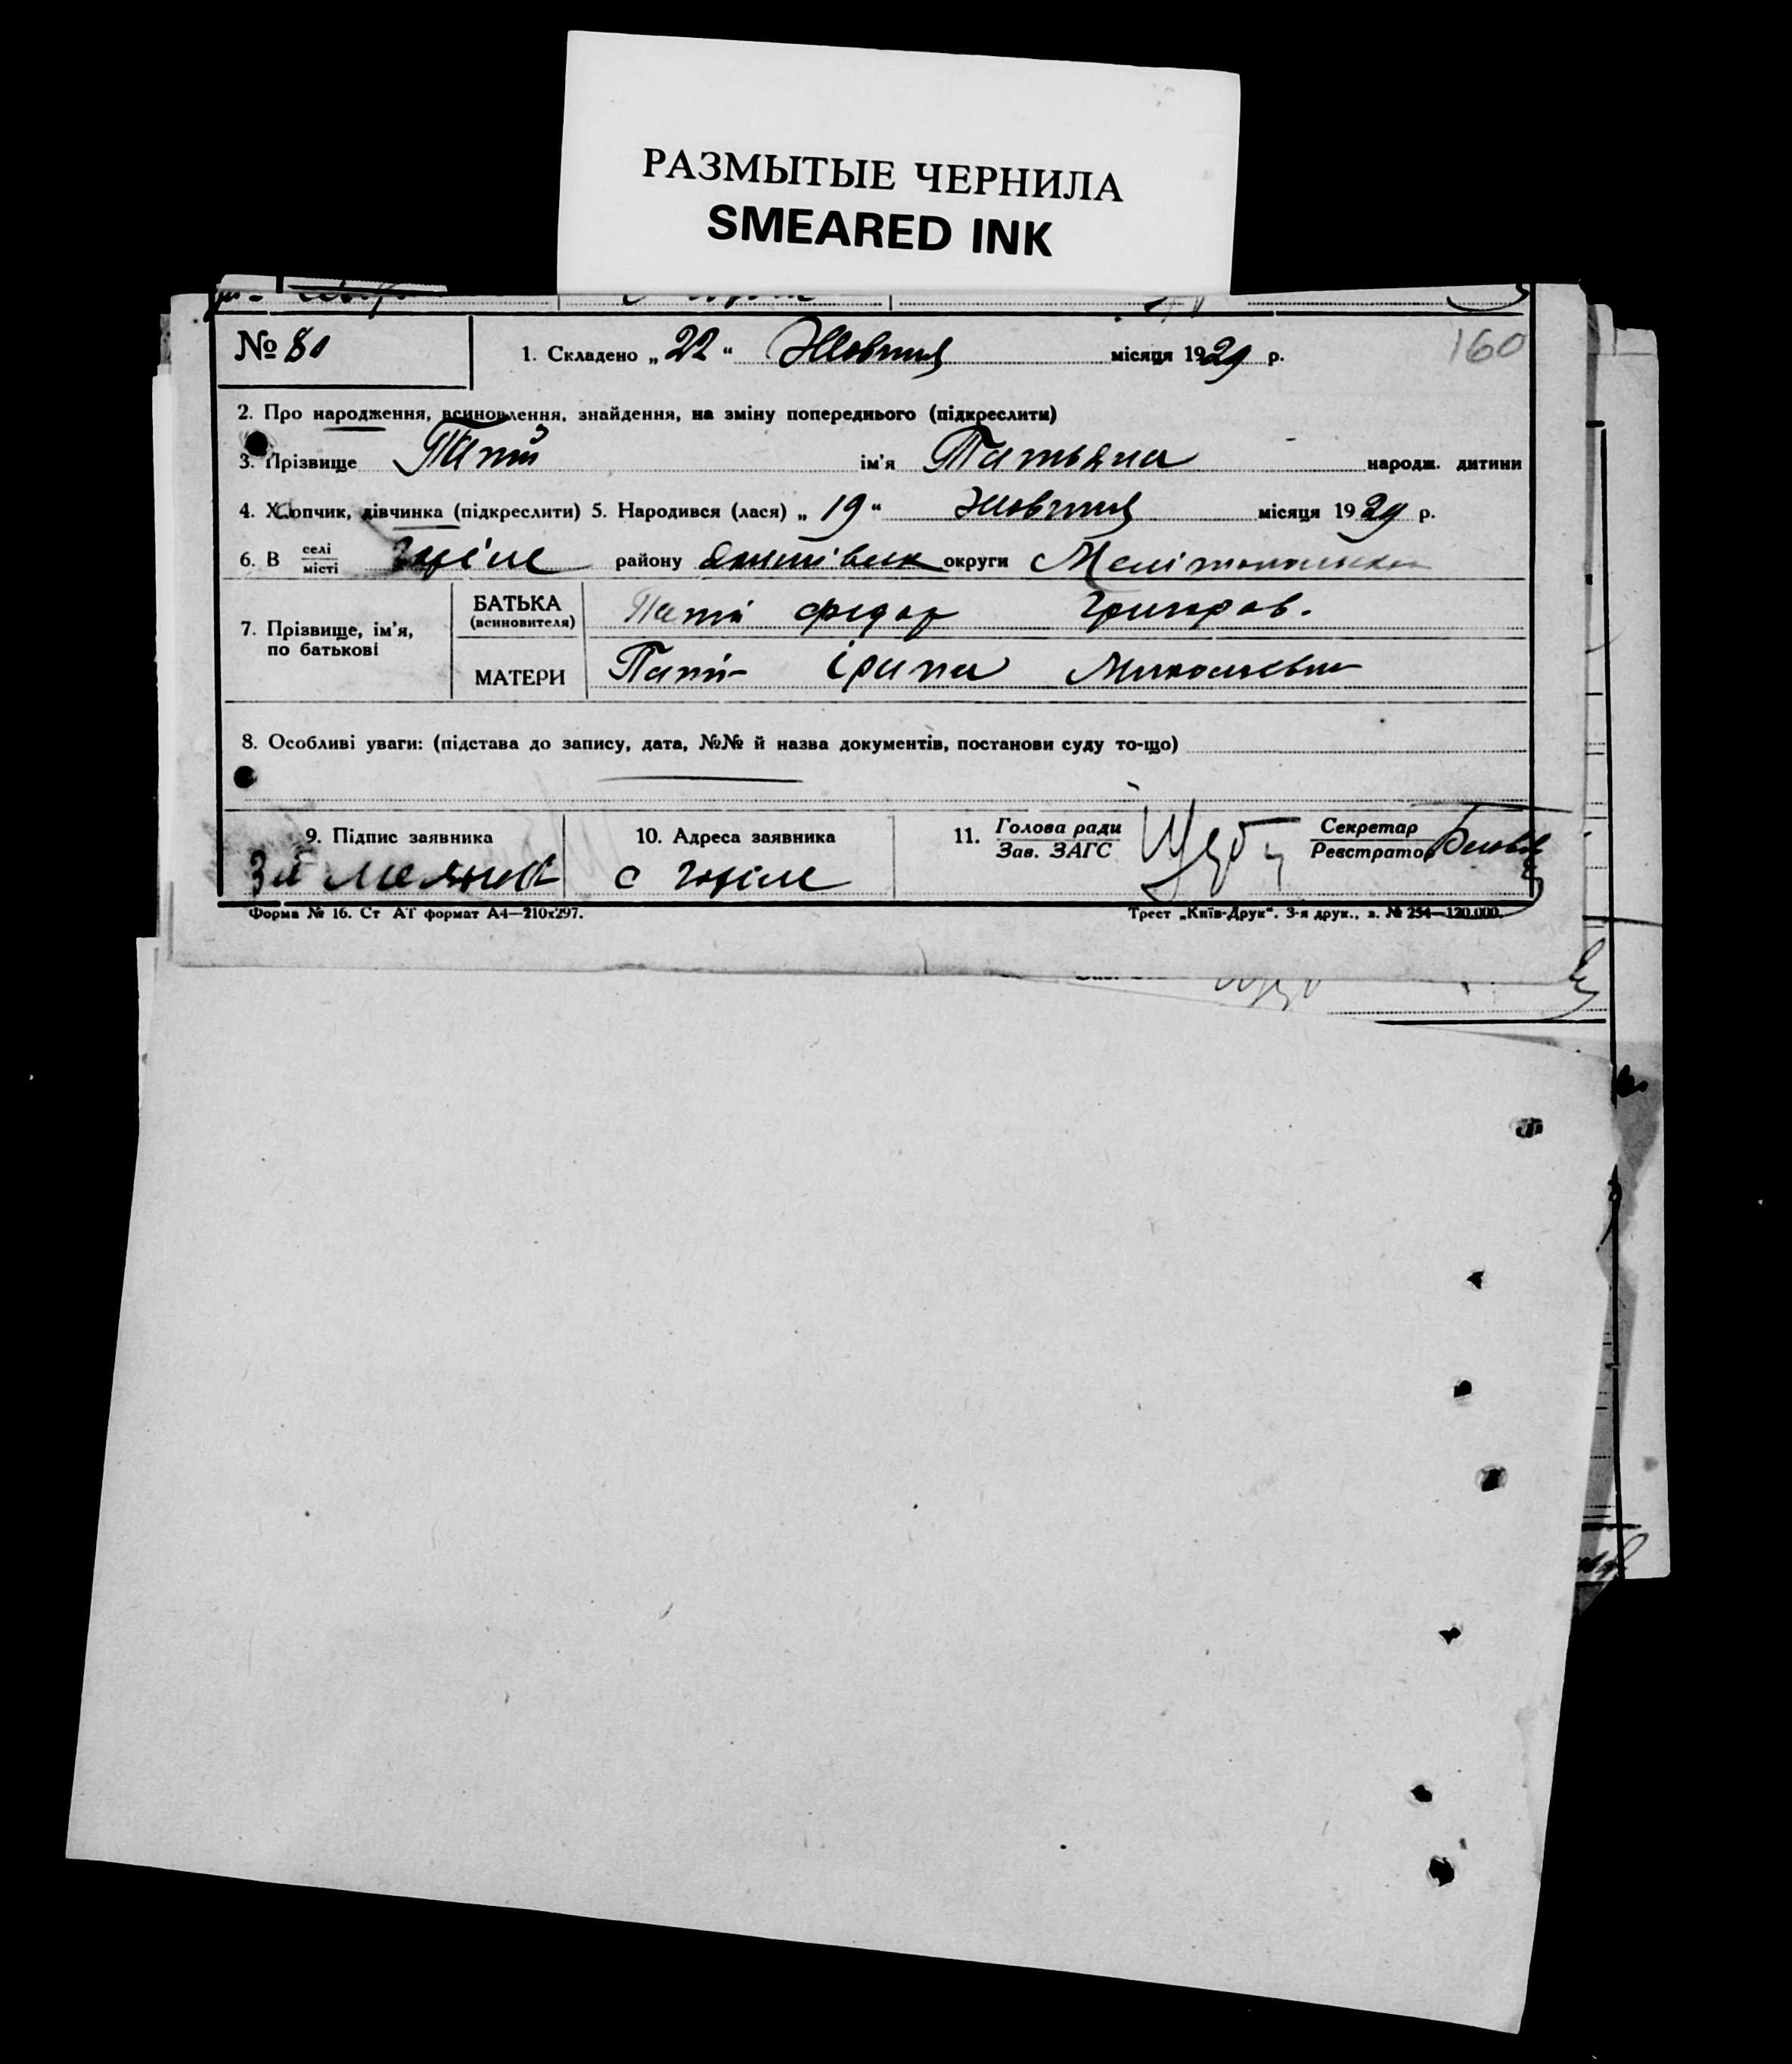 РАЗМЫТЫЕ ЧЕРНИЛА
SMEARED INK
№ 80
1. Складено „ 22 “ Жовтня місяця 1929 р.
160
2. Про народження, всиновлення, знайдення, на зміну попереднього (підкреслити)
3. Прізвище Папій ім'я Татьяна народж. дитини
4. Хлопчик, дівчинка (підкреслити) 5. Народився (лася) „ 19 “ Жовтня місяця 1929 р.
6. В селі місті району округи Мелітопольська
7. Прізвище, ім'я, по батькові
БАТЬКА (всиновителя) Федор Григоров.
МАТЕРИ Іріна Миколаевна
8. Особливі уваги: (підстава до запису, дата, №№ й назва документів, постанови суду то-що)
9. Підпис заявника
10. Адреса заявника
11. Голова ради Зав. ЗАГС
Секретар Реєстратор
с
Форма № 16. Ст АТ формат А4—210x297.
Трест „Київ-Друк“. 3-я друк., з. № 254—120.000.